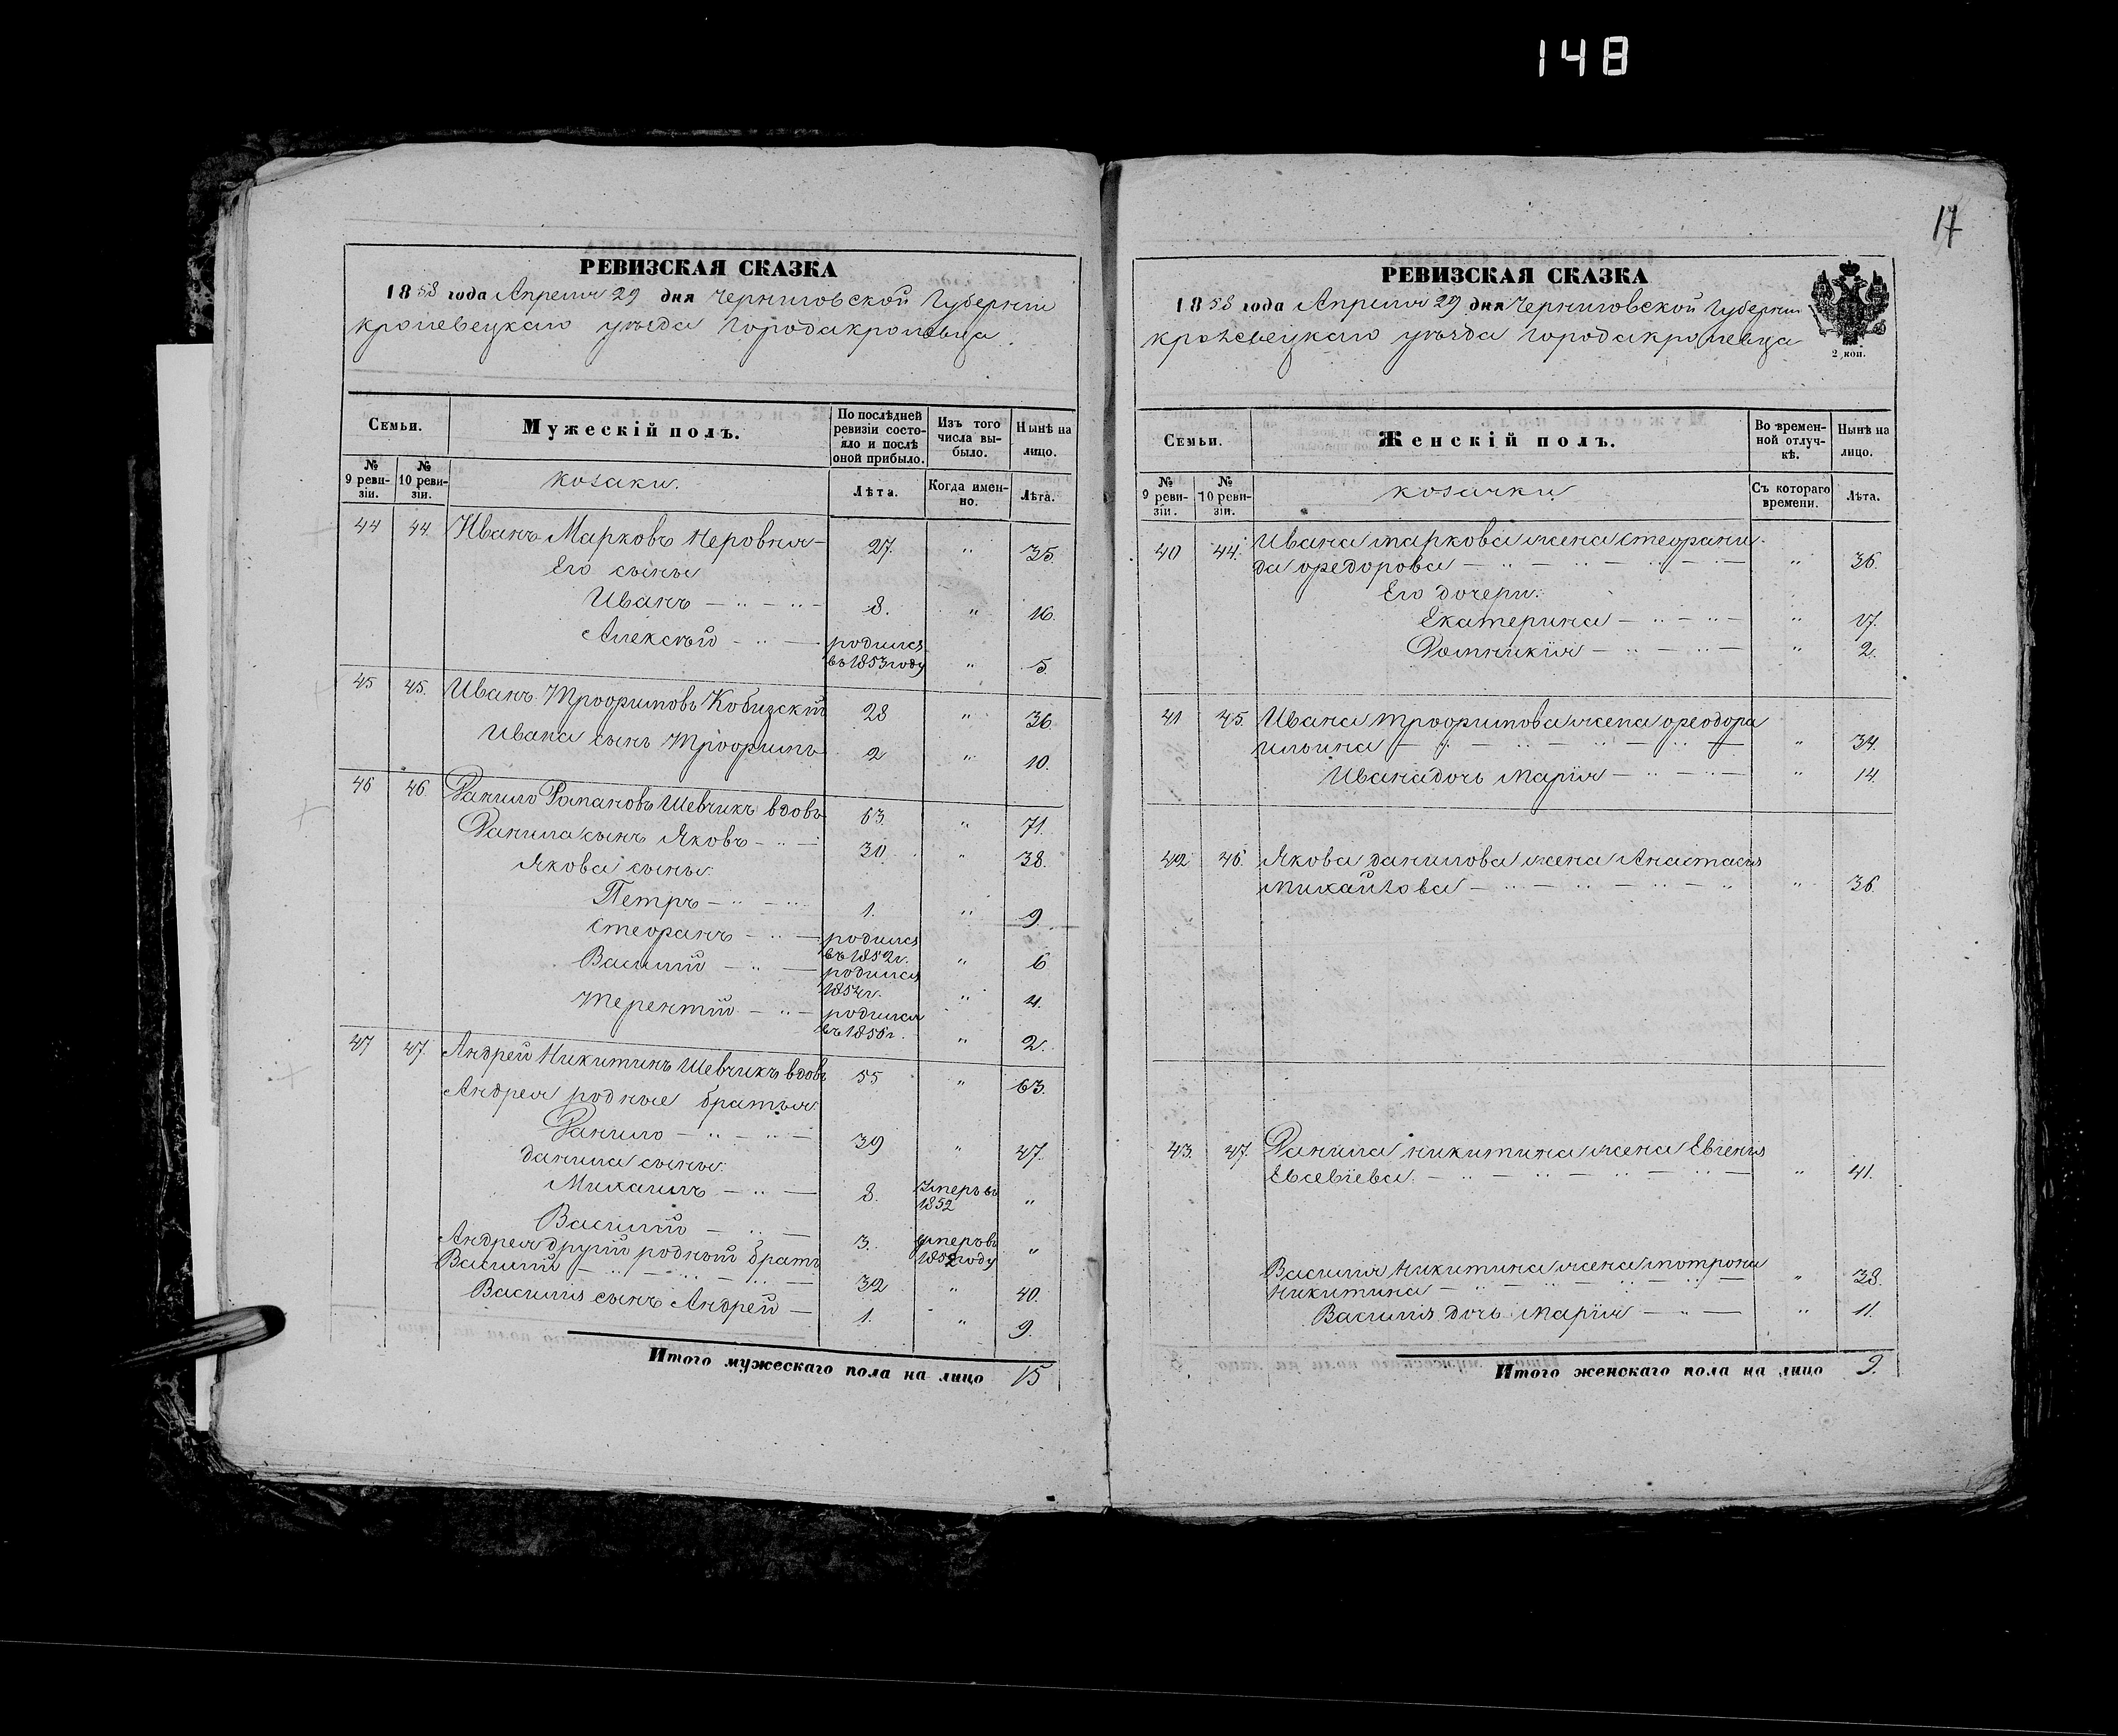 148
РЕВИЗСКАЯ СКАЗКА
1858 года Апреля 29 дня Черниговской Губернии
кролевецкаго уѣзда города кролевца.
Семьи.
Мужескій полъ.
По послѣдней ревизіи состояло и послѣ оной прибыло.
Изъ того числа выбыло.
Нынѣ на лицо.
№ 9 ревизіи.
№ 10 ревизіи.
козаки.
Лѣта.
Когда именно.
Лѣта.
44 44. Иванъ Марковъ Неровня — 27. " 35.
Его сыны
Иванъ — " — " — 8. " 16.
Алексѣй — " — родился въ 1853 году " 5.
45 45. Иванъ Трофимовъ Кобизскій 28 " 36.
Ивана сынъ Трофимъ 2 " 10.
46 46. Данило Романовъ Шевчикъ вдовъ 63. " 71.
Данила сынъ Яковъ — " — 30. " 38.
Якова сыны:
Петръ — " — " 1. " 9.
Стефанъ — " — родился въ 1852 г. " 6
Василий — " — родился 1854 г. " 4.
Терентий — " — родился въ 1856 г. " 2.
47 47. Андрей Никитинъ Шевчикъ вдовъ 55 " 63.
Андрея родные братья:
Данило — " — " — 39 " 47.
данила сыны:
Михаилъ — " — 8. Умеръ въ 1852 "
Василий — " — 3. умеръ въ 1852 году "
Андрея другий родный братъ
Василий — " — " — " — 32 " 40.
Василия сынъ Андрей — 1. " 9.
Итого мужескаго пола на лицо 15
17
РЕВИЗСКАЯ СКАЗКА
1858 года Апреля 29 дня Черниговской Губернии
кролевецкаго уѣзда города кролевца
2 коп.
Семьи.
Женскій полъ.
Во временной отлучкѣ.
Нынѣ на лицо.
№ 9 ревизіи.
№ 10 ревизіи.
козачки
Съ котораго времени.
Лѣта.
40 44. Ивана маркова жена Стефани-
да федорова — " — " — " — " 36.
Его дочери:
Екатерина — " — " — " 17.
Домникия — " — " — " 2.
41 45. Ивана трофимова жена феодора
ильина — " — " — " — " — " 34.
Ивана дочь Мария — " — " — " 14.
42 46. Якова данилова жена Анастасия
михайлова — " — " — " — " " 36.
43. 47. Данила никитина жена Евгения
Евсевіева. — " — " — " — " — " 41.
Василия никитина жена мотрона
никитина — " — " — " — " — " 38.
Василия дочь Мария — " — " 11.
Итого женскаго пола на лицо 9.